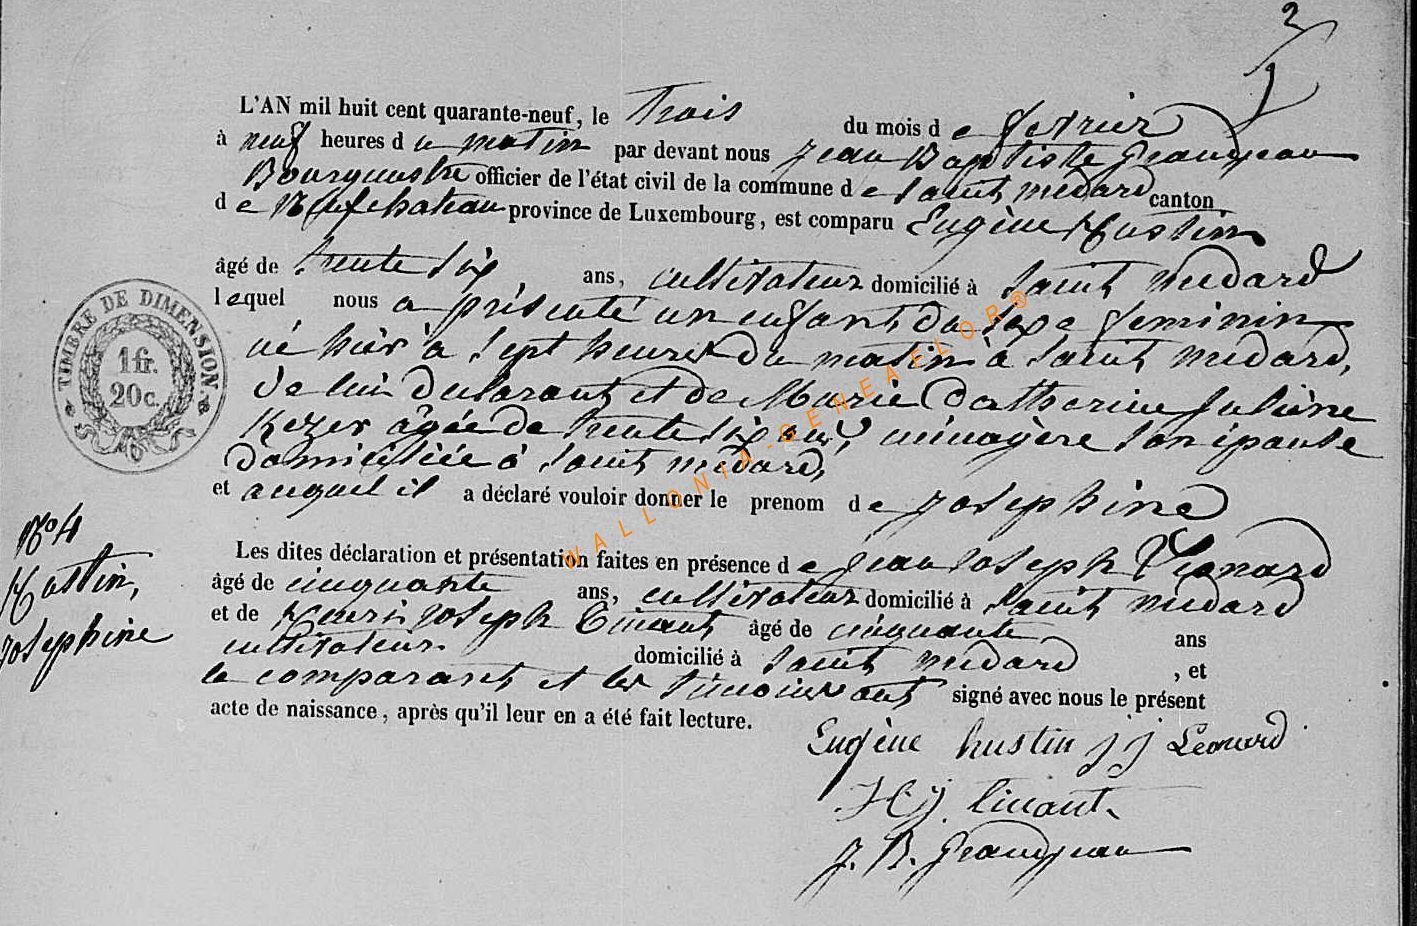 2
1
L'AN mil huit cent quarante-neuf, le Trois du mois de fevrier
à neuf heures du matin par devant nous Jean Baptiste Grandjean
Bourgmestre officier de l'état civil de la commune de saint médard canton
de Neufchateau province de Luxembourg, est comparu Eugène Hustin
âgé de trente six ans, cultivateur domicilié à saint médard
lequel nous a présenté un enfant du sexe feminin
né hier à sept heures du matin à saint médard,
de lui declarant et de Marie Catherine Juliène
Kezer âgée de trente six ans, ménagère son épouse
domiciliée à saint médard,
et auquel il a déclaré vouloir donner le prenom de Josephine
Les dites déclaration et présentation faites en présence de Jean Joseph Léonard
âgé de cinquante ans, cultivateur domicilié à saint médard
et de Henri Joseph Tinant âgé de cinquante ans
cultivateur domicilié à saint médard, et
le comparant et les témoins ont signé avec nous le présent
acte de naissance, après qu'il leur en a été fait lecture.
Eugène hustin j j Léonard
H. J. tinant
J. B. Grandjean
TIMBRE DE DIMENSION
1 fr.
20 c.
N° 4
Hustin,
Josephine
WALLONIA-GENEALOR®